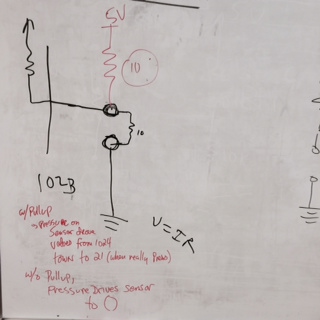 5V
10
10
1023
V=IR
w/Pullup
Pressure on
Sensor drives
values from 1024
down to 21 (when really Press)
w/o Pullup,
Pressure Drives Sensor
to 0